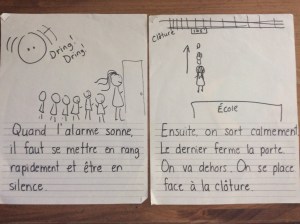 Dring!
Dring!
Quand l'alarme sonne,
il faut se mettre en rang
rapidement et être en
silence.
Clôture
École
Ensuite, on sort calmement.
Le dernier ferme la porte.
On va dehors. On se place
face à la clôture.